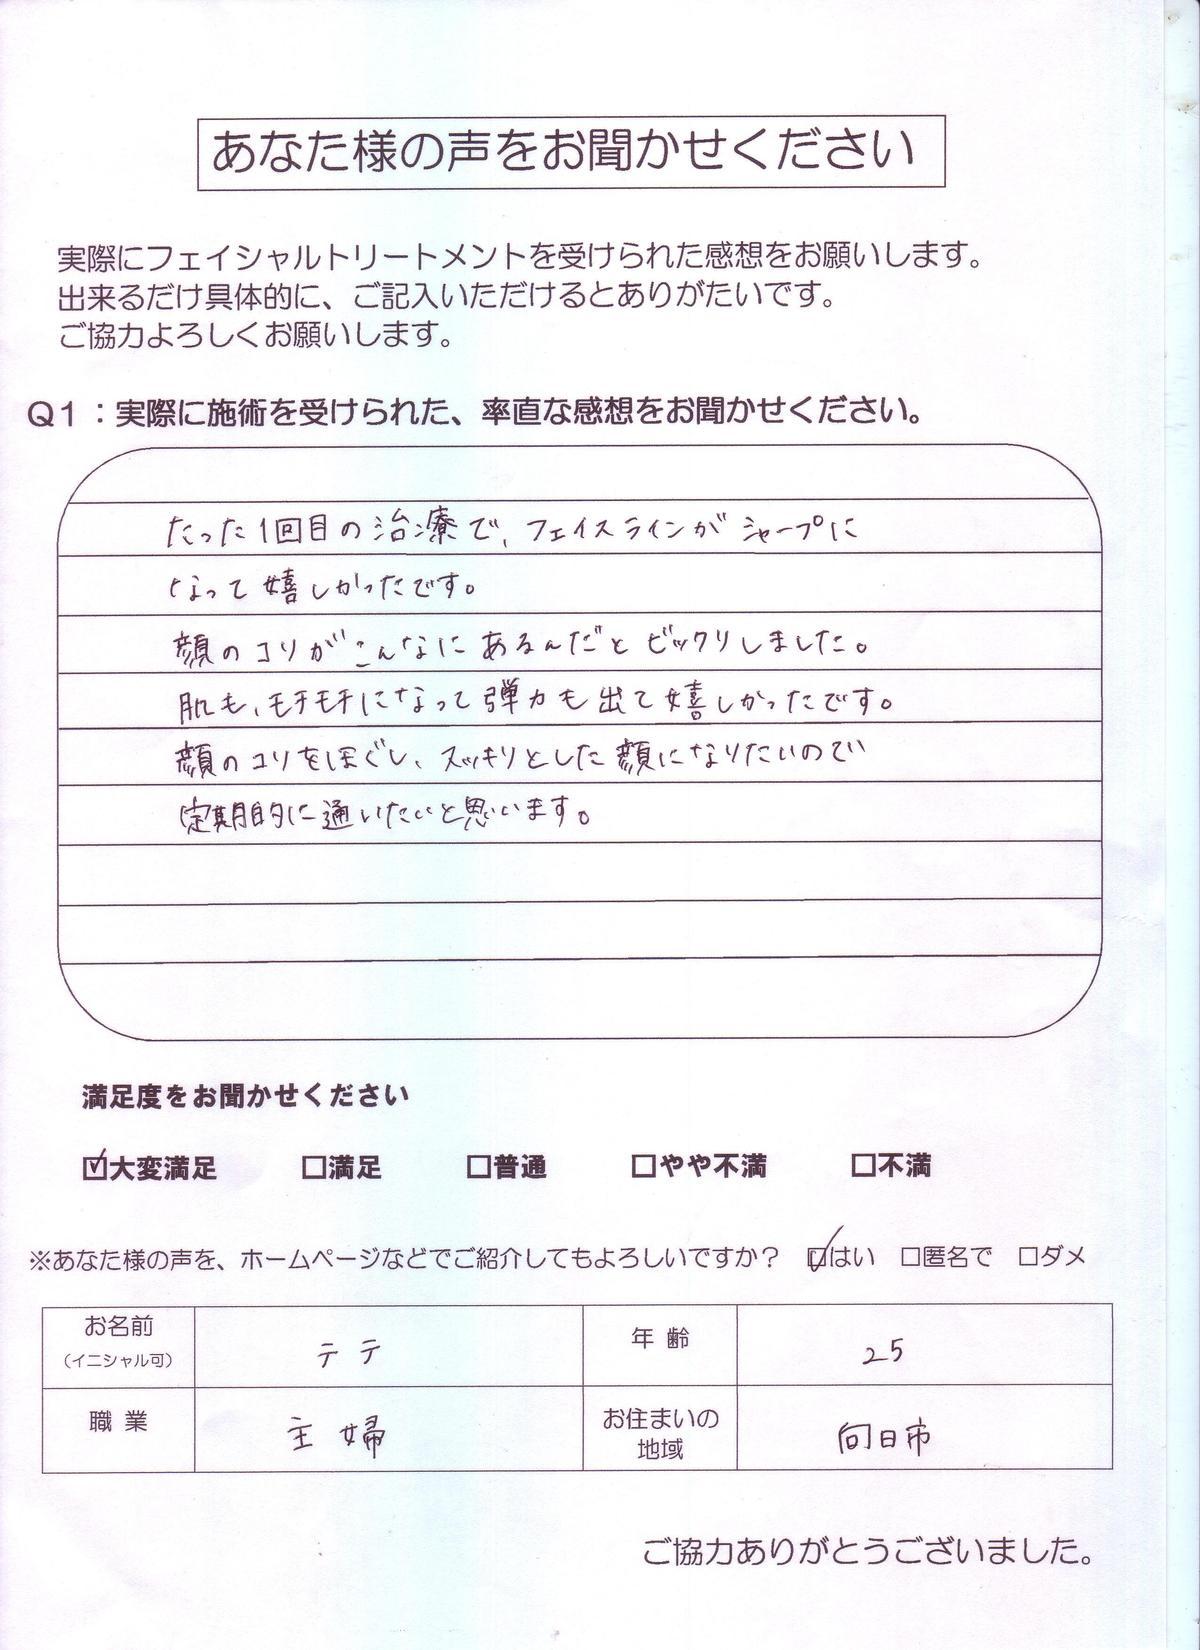 あなた様の声をお聞かせください
実際にフェイシャルトリートメントを受けられた感想をお願いします。
出来るだけ具体的に、ご記入いただけるとありがたいです。
ご協力よろしくお願いします。
Q1：実際に施術を受けられた、率直な感想をお聞かせください。
たった1回目の治療で、フェイスラインがシャープに
なって嬉しかったです。
顔のコリがこんなにあるんだとビックリしました。
肌も、モチモチになって弾力も出て嬉しかったです。
顔のコリをほぐし、スッキリとした顔になりたいので
定期的に通いたいと思います。
満足度をお聞かせください
☑大変満足 □満足 □普通 □やや不満 □不満
※あなた様の声を、ホームページなどでご紹介してもよろしいですか？ ☑はい □匿名で □ダメ
お名前 テテ 年齢 25
（イニシャル可）
職業 主婦 お住まいの 向日市
地域
ご協力ありがとうございました。